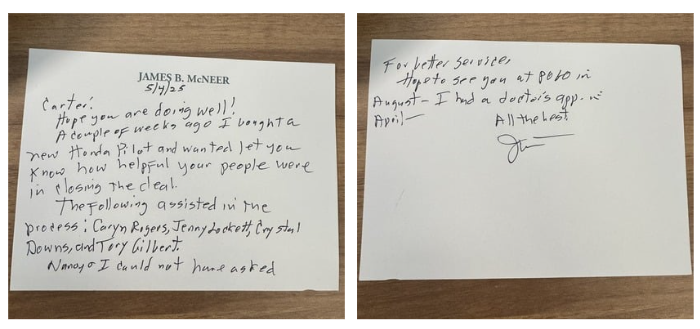 JAMES B. McNEER
5/4/25
Carter:
Hope you are doing well!
A couple of weeks ago I bought a
new Honda Pilot and wanted let you
know how helpful your people were
in closing the deal.
The following assisted in the
process: Caryn Rogers, Jenny Lockett, Crystal
Downs, and Tory Gilbert.
Nancy & I could not have asked
For better services.
Hope to see you at in
August - I had a doctor's app. in
April -
All the best